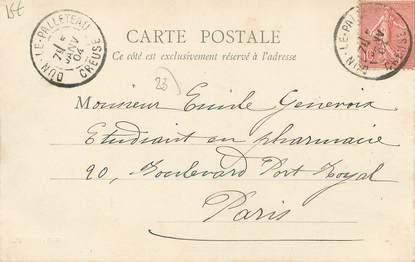 15€
CARTE POSTALE
Ce côté est exclusivement réservé à l'adresse
DUN-LE-PALLETEAU
CREUSE
JANV
04
23
Monsieur Emile Genevoix
Etudiant en pharmacie
90, Boulevard Port Royal
Paris